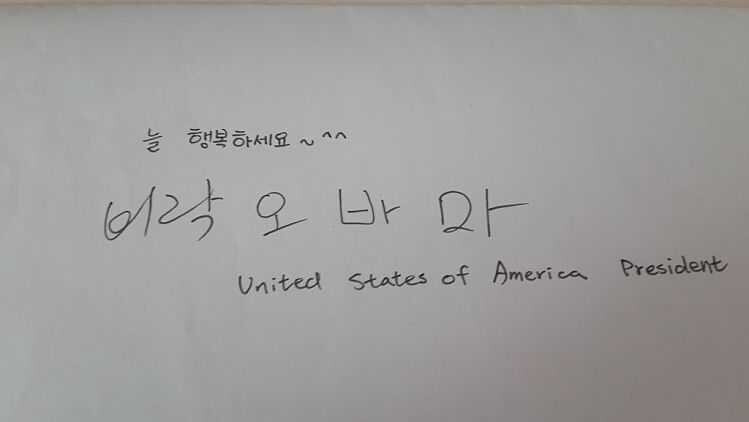 늘 행복하세요~^^
버락 오 바 마
United States of America President